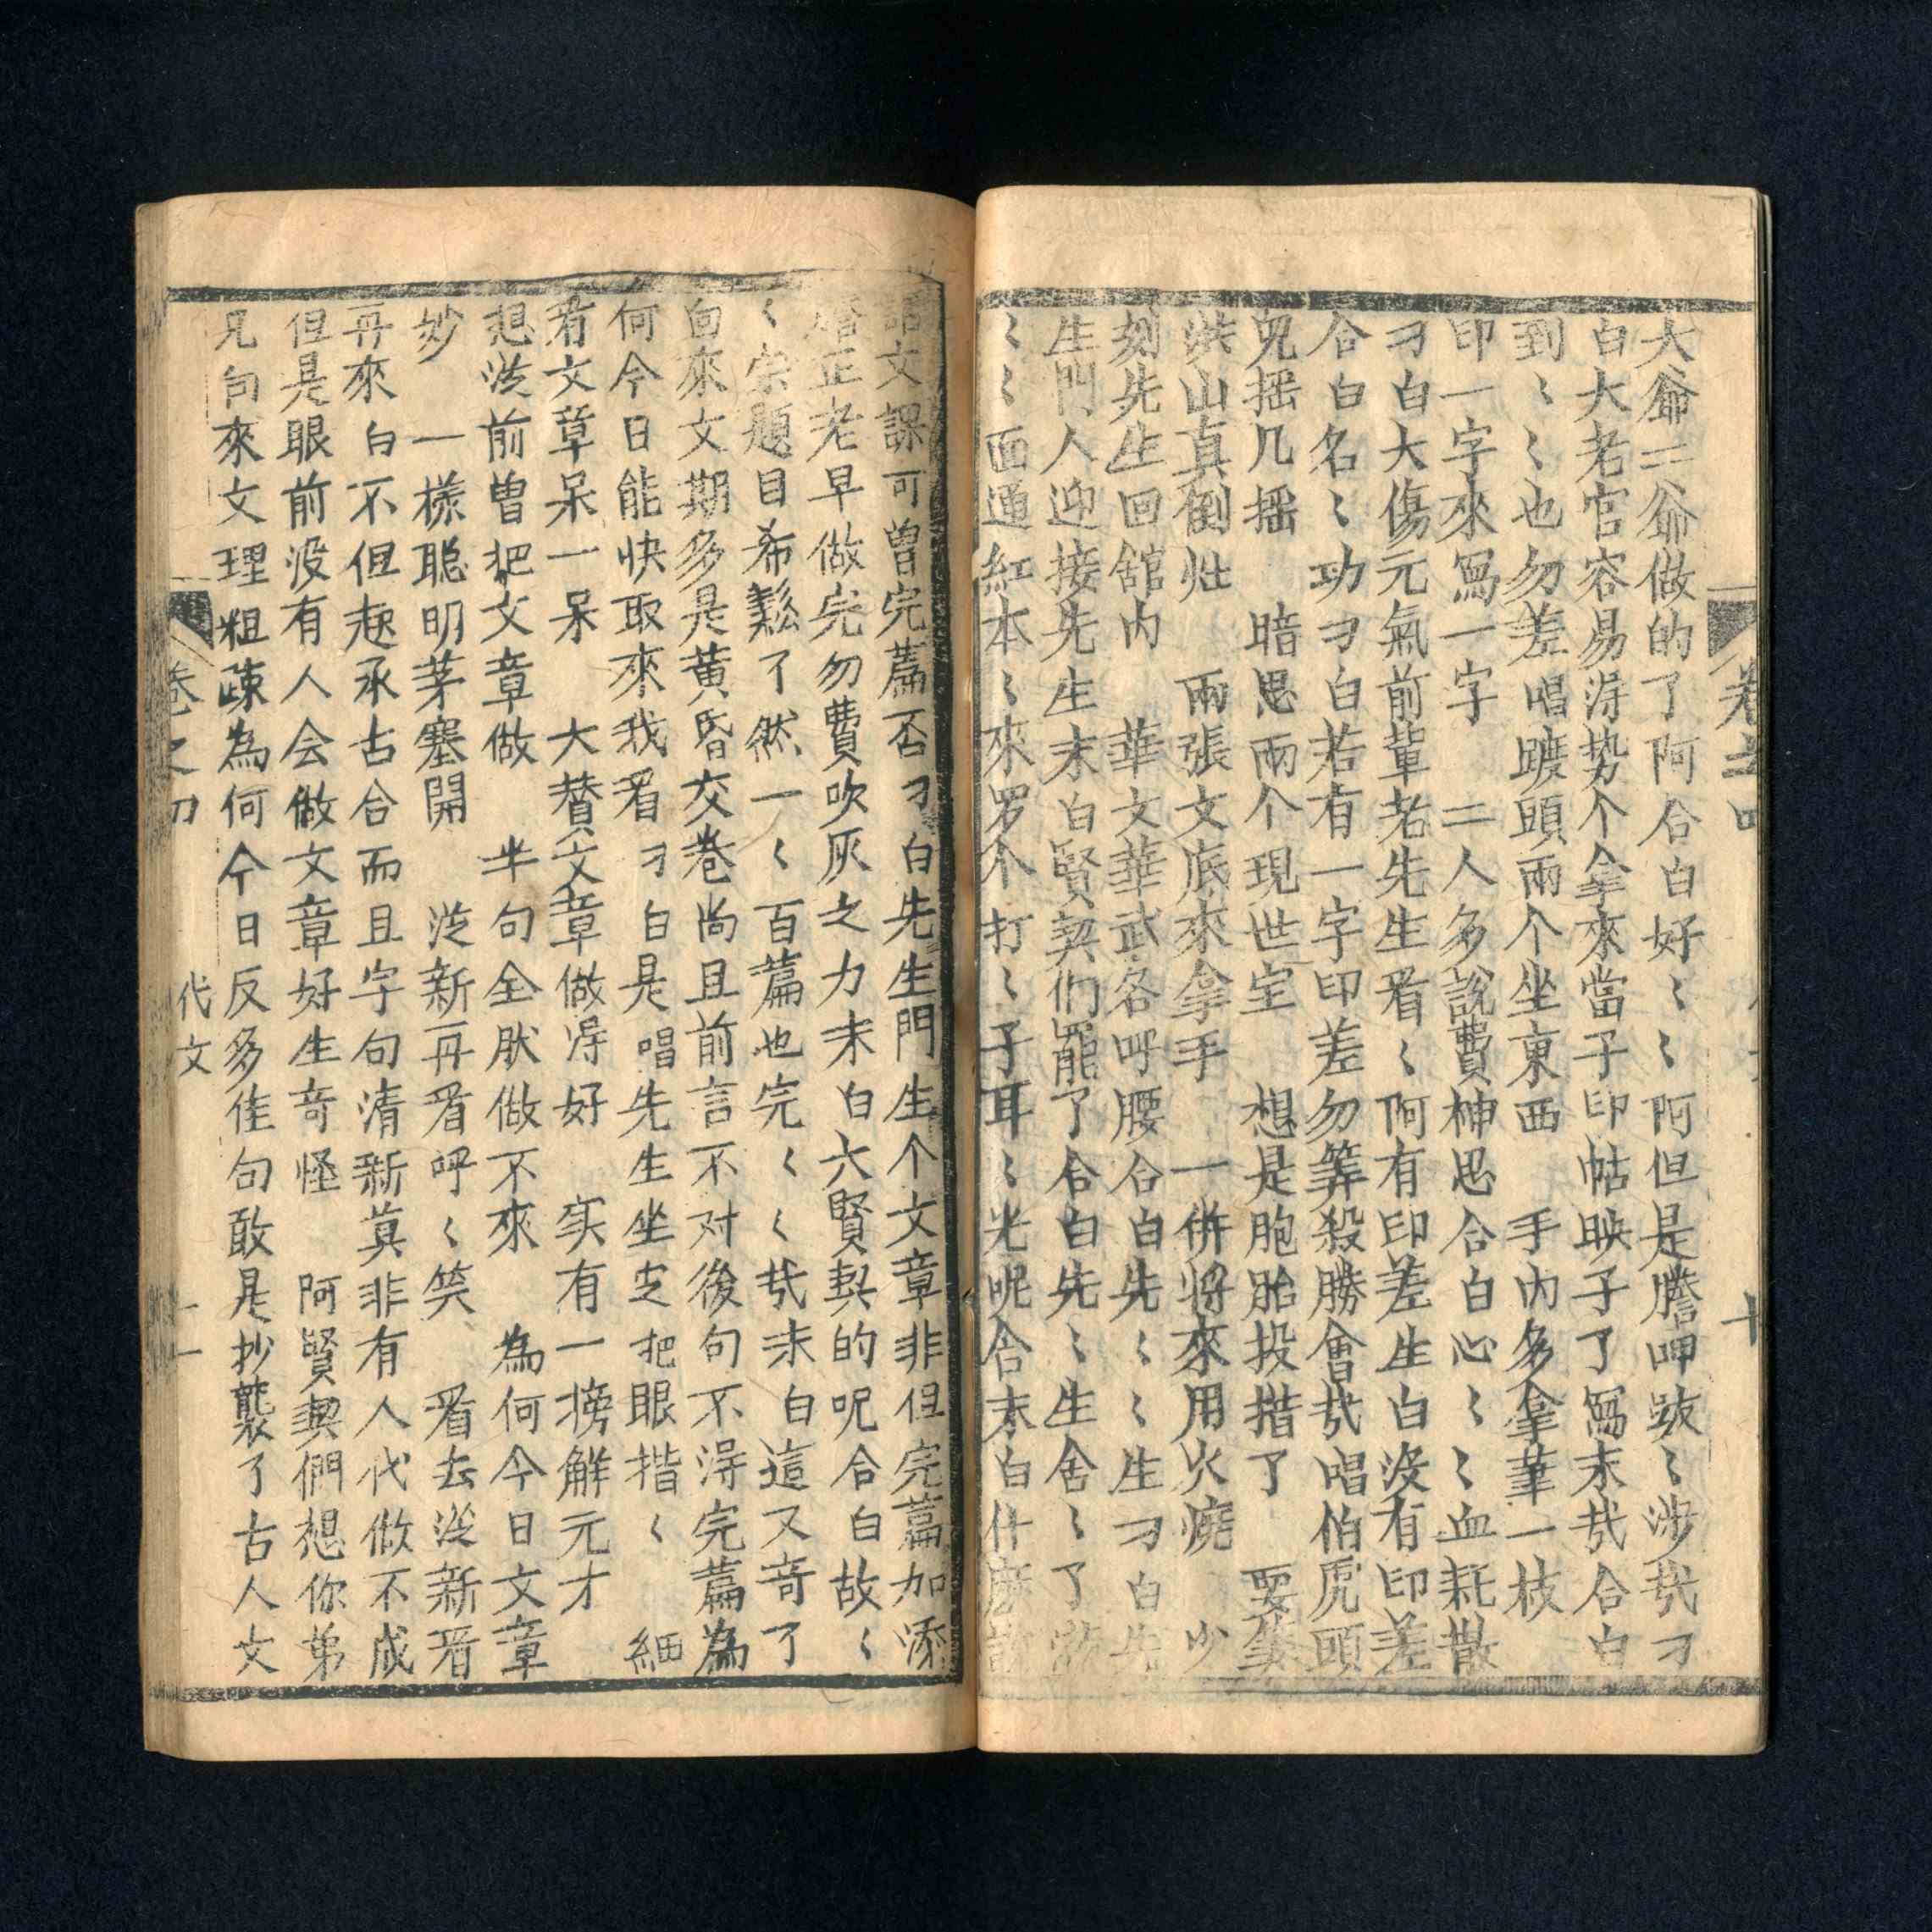 大爺二爺做的了阿合白好〻〻阿但是謄呷跋〻涉㢤刁
白大老官容易淂势个拿來當子印帖映子了寫末㢤合白
到〻〻也勿差唱踱頭兩个坐東西　手內多拿筆一枝
印一字來寫一字　二人多說費神思合白心〻〻血耗散
刁白大傷元氣前軰老先生看〻阿有印差生白没有印差
合白名〻功刁白若有一字印差勿筭殺勝會㢤唱伯虎頭
兒揺几揺　暗思兩个現世宝　想是胞胎投措了　要筆
洪山真倒灶　兩張文底來拿手　一併將來用火燒　少
刻先生回舘內　華文華武各呼腰合白先〻〻生刁白先
生門人迎接先生末白賢契们罷了合白先〻生舍〻了
〻〻面通紅本〻來罗个打〻子耳〻光呢合末白什麼
文課可曾完篇否刁白先生門生个文章非但完篇加添
正老早做完勿費吹灰之力末白大賢契的呢合白故〻
〻宗題目希鬆了然一〻百篇也完〻〻㢤末白這又竒了
向來文期多是黄昏交卷尚且前言不对後句不淂完篇為
何今日能快取來我看刁白是唱先生坐定把眼揩〻　細
看文章呆一呆　大賛文章做淂好　实有一榜觧元才
想従前曽把文章做　半句全肰做不來　為何今日文章
妙　一樣聪明茅塞開　従新再看呼〻笑　看去従新看
再來白不但趂承古合而且字句清新莫非有人代做不成
但是眼前没有人会做文章好生竒怪　阿賢契們想你弟
兄向來文理粗疎為何今日反多佳句敢是抄襲了古人文
卷之四
代文
十一